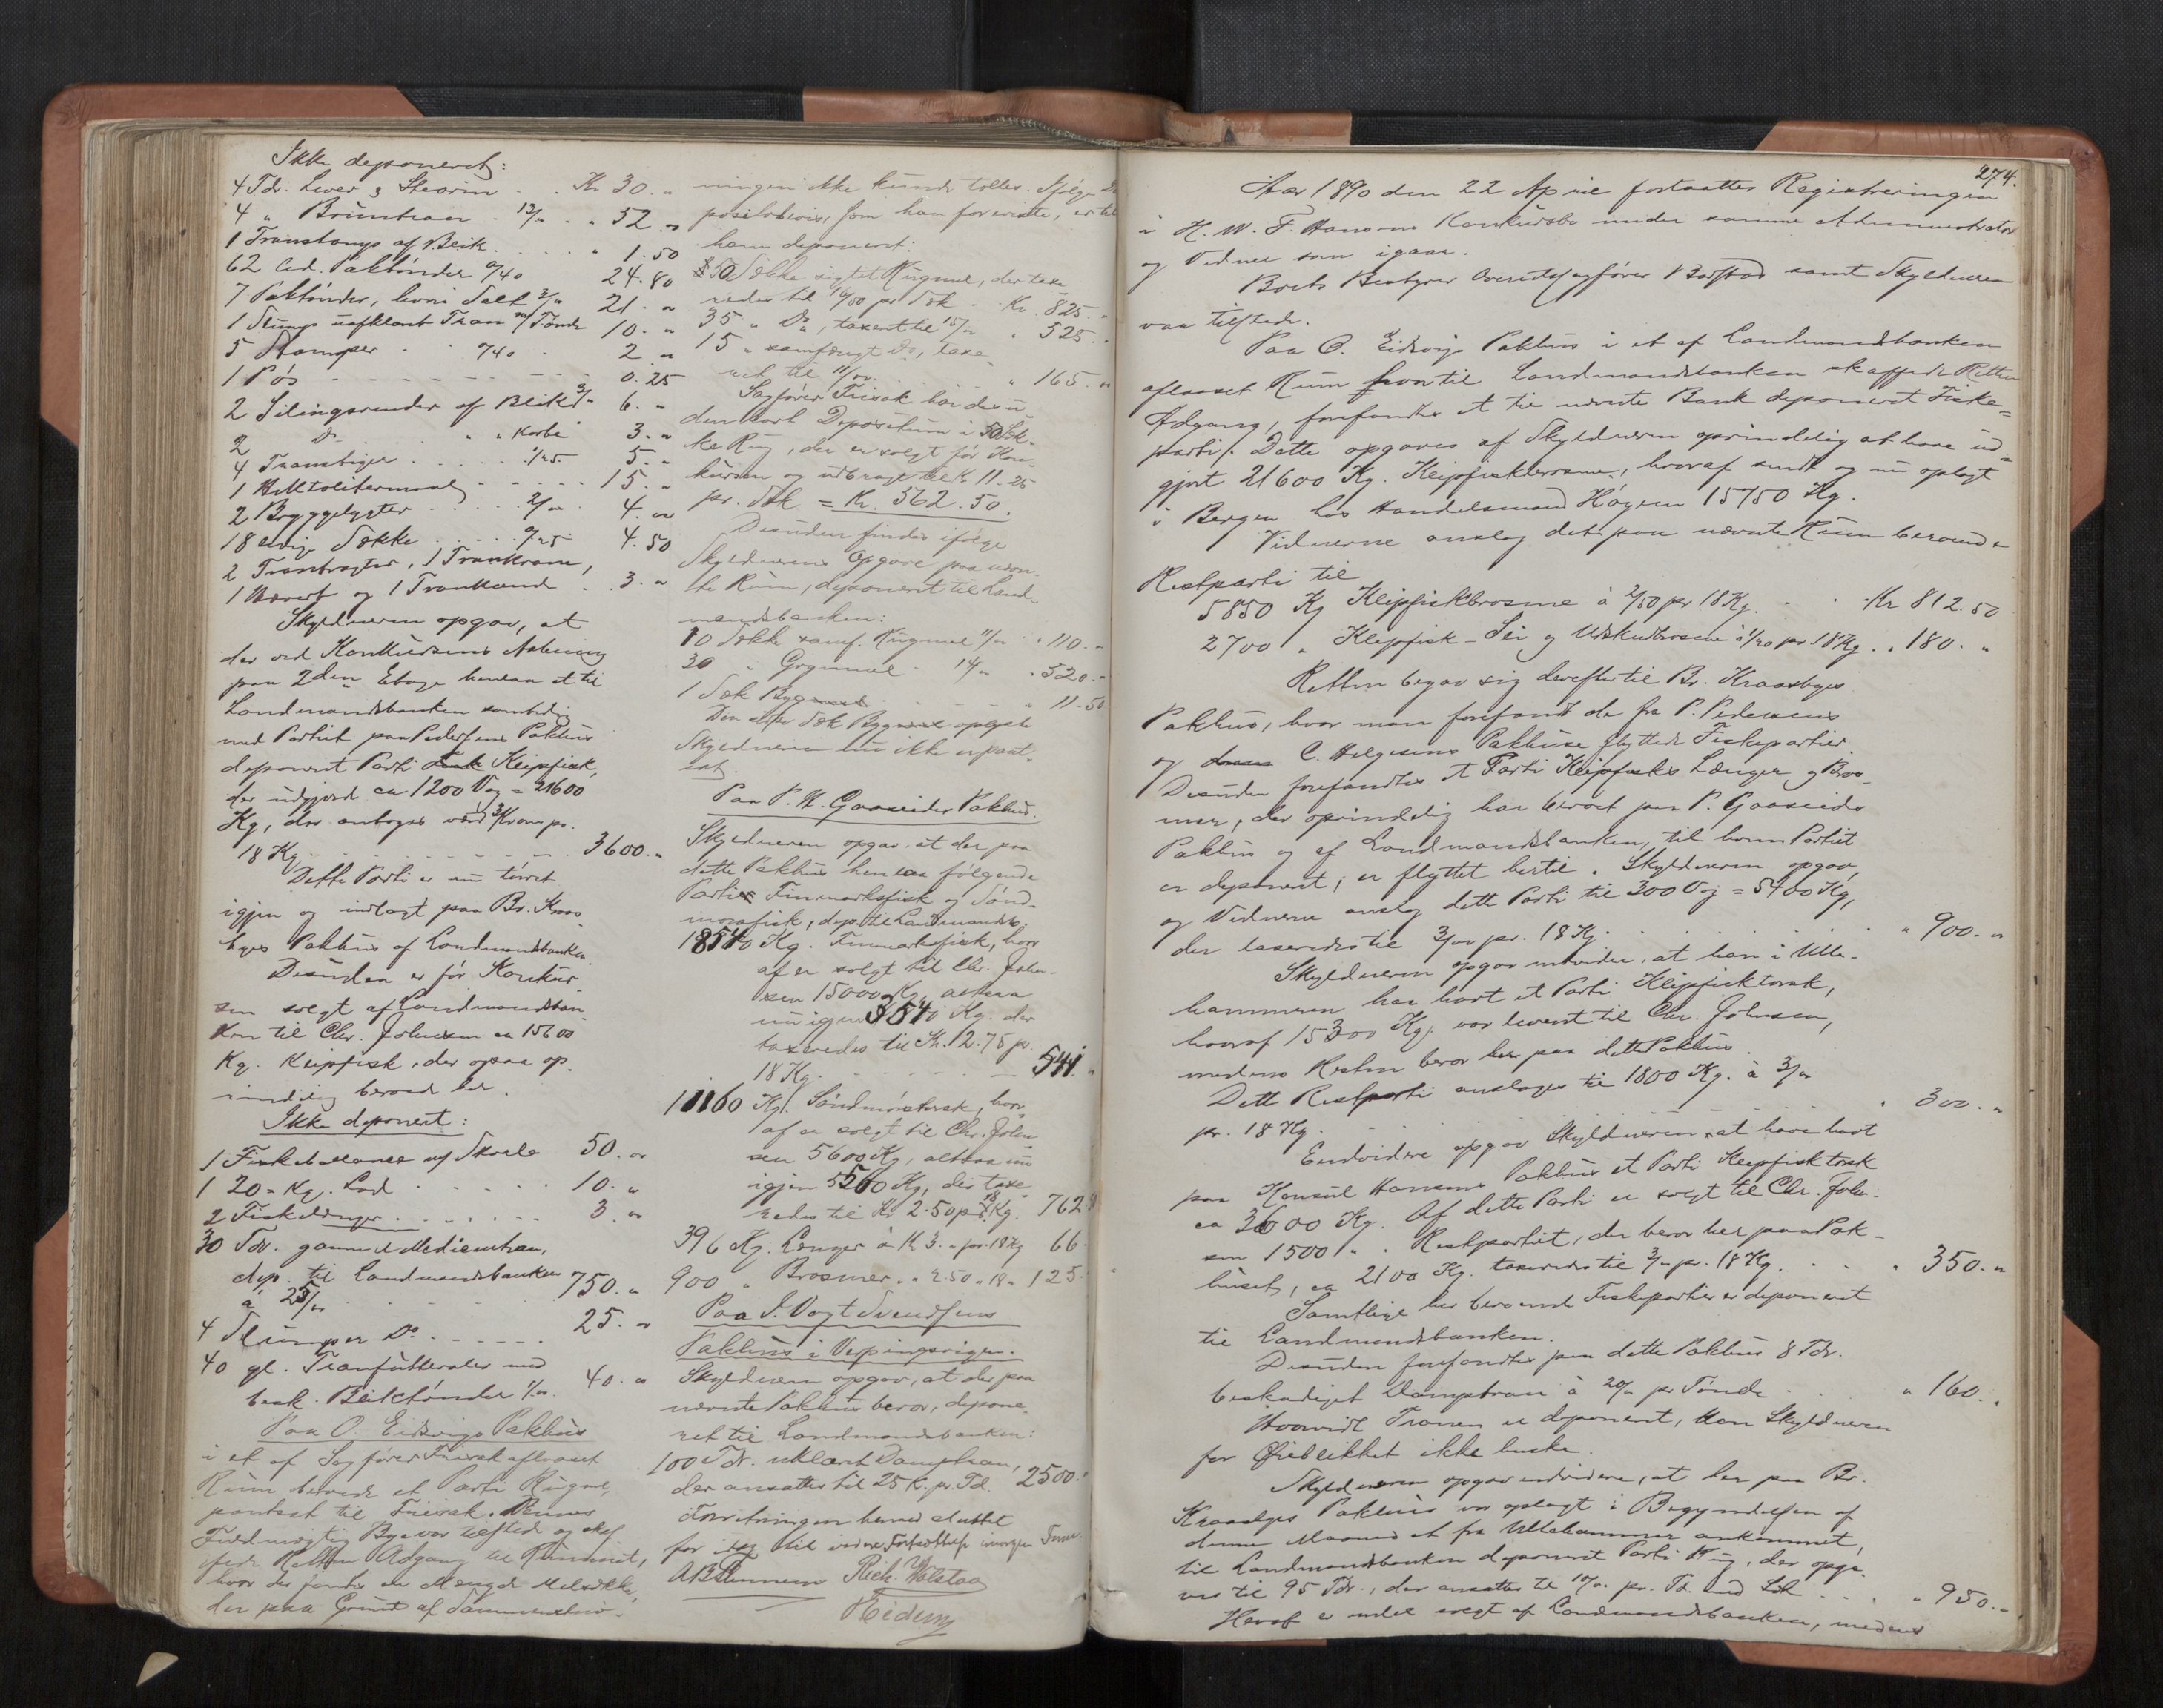 Ikke deponeret:
4 Tdr. Lever & Stearin - . Kr 30. "
4 " Bruntran . 13/" . " 52. "
1 Transtamp af Blik. . . . " 1.50
62 led. Paktønder 0/40 24.80
7 Paktønder, hvori Salt 3/" 21. "
1 Slump uafklaret Tran Tønde 10. "
5 Stamper . . 0/40 . 2. "
1 Pøs - - - - - - - 0.25
2 Silingsrender af Blik 3/" 6. "
2 Do . . " " Korbi 3. "
4 Transtiger . . . . 1/25 5. "
1 Hektolitermaal - - - - - 15. "
2 Bryggelygter . . . . 2/" 4. "
18 ledige Sække . . . 0/25 4.50
2 Trantragter, 1 Trankrane,
1 og 1 Trankande . 3. "
Skyldneren opgav, at
der ved Konkursens Aabning
paa 2den Etage henlaa et til
Landmandsbanken samtidig
med Partiet paa Pedersens Pakhus
deponeret Parti Klipfisk,
der udgjorde ca 1200 Vog = 21600
Kg, der antoges værd 3 Kroner pr.
18 Kg. - - - - - - - 3600. "
Dette Parti er nu tørret
igjen og indlagt paa Br. Kraas
byes Pakhus af Landmandsbanken.
Desuden er før Konkur-
sen solgt af Landmandsban
ken til Chr. Johnsen ca 15600
Kg. Klipfisk, der ogsaa op-
rindelig beroede her.
Ikke deponeret:
1 Fiskebalance af Skaale 50. "
1 20 Kg. Lod . . . . . 10. "
2 . . . . . . 3. "
30 Tdr. gammel Medicintran,
dep. til Landmandsbanken
à 25/" . . . . . 750. "
4 Slumper Do . - - - - 25. "
40 gl. Tranfutteraler med
besk. Bliktønder 1/" . 40. "
Paa O. Eidsvigs Pakhus
i et af Sagfører Friisak aflaaset
Rum beroede et Parti Rugmel,
pantsat til Friisak. Dennes
Fuldmægtig Bye var tilstede og skaf
fede Retten Adgang til Rummet,
hvor der fandtes en Mængde Melsække,
der paa Grund af Sammenstuv-
ningen ikke kunde tælles. Ifølge De
positobevis, som han foreviste, er til
ham deponeret:
50 Sække sigtet Rugmel, der taxe
redes til 16/50 pr Sæk . Kr. 825. "
35 " Do, taxeret til 15/" " 525. "
15 " samfængt Do, taxe
ret til 11/" . . . . . " 165. "
Sagfører Friisak har des-
uden havt Depositum i 50 Sæk-
ke Rug, der er solgt før Kon-
kursen og udbragt til Kr. 11.25
pr. Sæk = Kr. 562.50.
Desuden findes ifølge
Skyldnerens Opgave paa nævn-
te Rum, deponeret til Land-
mandsbanken:
10 Sække samf. Rugmel 11/" " 110. "
30 " Grynmel . 14/" " 520. "
1 Sæk Byg . . . . . " 11.50
Den ene Sæk Byg oplyste
Skyldneren ikke er pant-
sat.
Paa P. H. Gaaseides Pakhus.
Skyldneren opgav, at der paa
dette Pakhus henlaa følgende
Partier Finmarksfisk og Sønd-
mørsfisk, dep. til Landmandsb.:
18540 Kg. Finmarksfisk, hvor
af er solgt til Chr. John-
sen 15000 Kg, altsaa
nu igjen 3540 Kg. der
taxeredes til Kr. 2.75 pr.
18 Kg. - - - - - - 541. "
11160 Kg. Søndmørstorsk, hvor
af er solgt til Chr. John
sen 5600 Kg, altsaa nu
igjen 5560 Kg, der taxe-
redes til Kr 2.50 pr 18 Kg. 762.
396 Kg. Længer à Kr 3. " pr. 18 Kg 66.
900 " Brosmer. " 2.50 " 18 " 125.
Paa J. Vogt Svendsens
Pakhus i Verpingsvigen.
Skyldneren opgav, at der paa
nævnte Pakhus beror, depone-
ret til Landmandsbanken:
100 Tdr. uklaret Damptran,
der ansattes til 25 Kr. pr. Td. 2500. "
Forretningen hermed sluttet
for idag til videre Fortsættelse imorgen
Rich. Walstad
274.
Aar 1890 den 22 April fortsattes Registreringen
i H. W. F. Hansens Konkursbo under samme Administrator
og Vidner som igaar.
Boets Bestyrer Overretssagfører Bostad samt Skyldneren
var tilstede.
Paa O. Eidsvigs Pakhus i et af Landmandsbanken
aflaaset Rum hvortil Landmandsbanken skaffede Retten
Adgang, forefandtes et til nævnte Bank deponeret Fiske-
parti. Dette opgaves af Skyldneren oprindelig at have ud-
gjort 21600 Kg. Klipfiskbrosme, hvoraf sendt og nu oplagt
i Bergen hos Handelsmand Høyem 15750 Kg.
Vidnerne anslog det paa nævnte Rum beroende
Restparti til
5850 Kg Klipfiskbrosme à 2/50 pr 18 Kg. . . Kr 812.50
2700 " Klipfisk-Sei og Udskudbrosme à 1/20 pr 18 Kg. . " 180. "
Retten begav sig derefter til Br. Kraasbyes
Pakhus, hvor man forefandt de fra P. Pedersens
og C. Holgesens Pakhuse flyttede Fiskepartier.
Desuden forefandtes et Parti Klipfisk Længer og Bros-
mer, der oprindelig har beroet paa P. Gaaseides
Pakhus og af Landmandsbanken, til hvem Partiet
er deponeret, er flyttet hertil. Skyldneren opgav,
og Vidnerne anslog dette Parti til 300 Vog = 5400 Kg,
der taxeredes til 3/00 pr. 18 Kg. . . . . " 900. "
Skyldneren opgav endvidere, at han i Ulla-
hammeren har havt et Parti Klipfisktorsk,
hvoraf 15300 Kg. var leveret til Chr. Johnsen,
medens Resten beror her paa dette Pakhus.
Dette Restparti ansloges til 1800 Kg. à 3/"
pr. 18 Kg. . . . . . . " 300. "
Endvidere opgav Skyldneren at have havt
paa Konsul Hansens Pakhus et Parti Klipfisktorsk
ca 3600 Kg. Af dette Parti er solgt til Chr. John-
sen 1500 " . Restpartiet, der beror her paa Pak-
huset, ca 2100 Kg. taxeredes til 3/" pr. 18 Kg. . . . " 350. "
Samtlige her beroende Fiskepartier er deponeret
til Landmandsbanken.
Desuden forefandtes paa dette Pakhus 8 Tdr.
beskadiget Damptran à 20/" pr Tønde . . " 160. "
Hvorvidt Tranen er deponeret, kan Skyldneren
for Øieblikket ikke huske.
Skyldneren opgav endvidere, at her paa Br.
Kraasbyes Pakhus var oplagt i Begyndelsen af
denne Maaned et fra Ullahammer ankommet,
til Landmandsbanken deponeret Parti Rug, der opga-
ves til 95 Tdr., der ansattes til 10/" pr. Td. med Sæk . . . " 950. "
Heraf er endel solgt af Landmandsbanken, medens